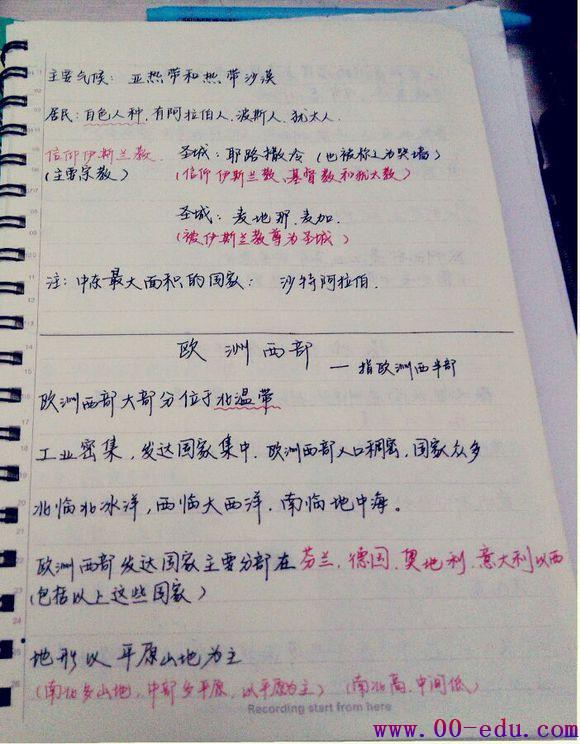 主要气候：亚热带和热带沙漠
居民：白色人种，有阿拉伯人、波斯人、犹太人.
信仰伊斯兰教. 圣城：耶路撒冷（也被称之为哭墙）
(主要宗教) (信仰伊斯兰教、基督教和犹太教)
圣城：麦地那、麦加.
(被伊斯兰教尊为圣城)
注：中东最大面积的国家： 沙特阿拉伯.
欧洲西部
— 指欧洲西半部
欧洲西部大部分位于北温带
工业密集，发达国家集中. 欧洲西部人口稠密，国家众多
北临北冰洋，西临大西洋，南临地中海。
欧洲西部发达国家主要分部在芬兰、德国、奥地利、意大利以西
(包括以上这些国家)
地形以平原山地为主
(南北多山地，中部多平原，以平原为主) (南北高，中间低)
Recording start from here
www.00-edu.com